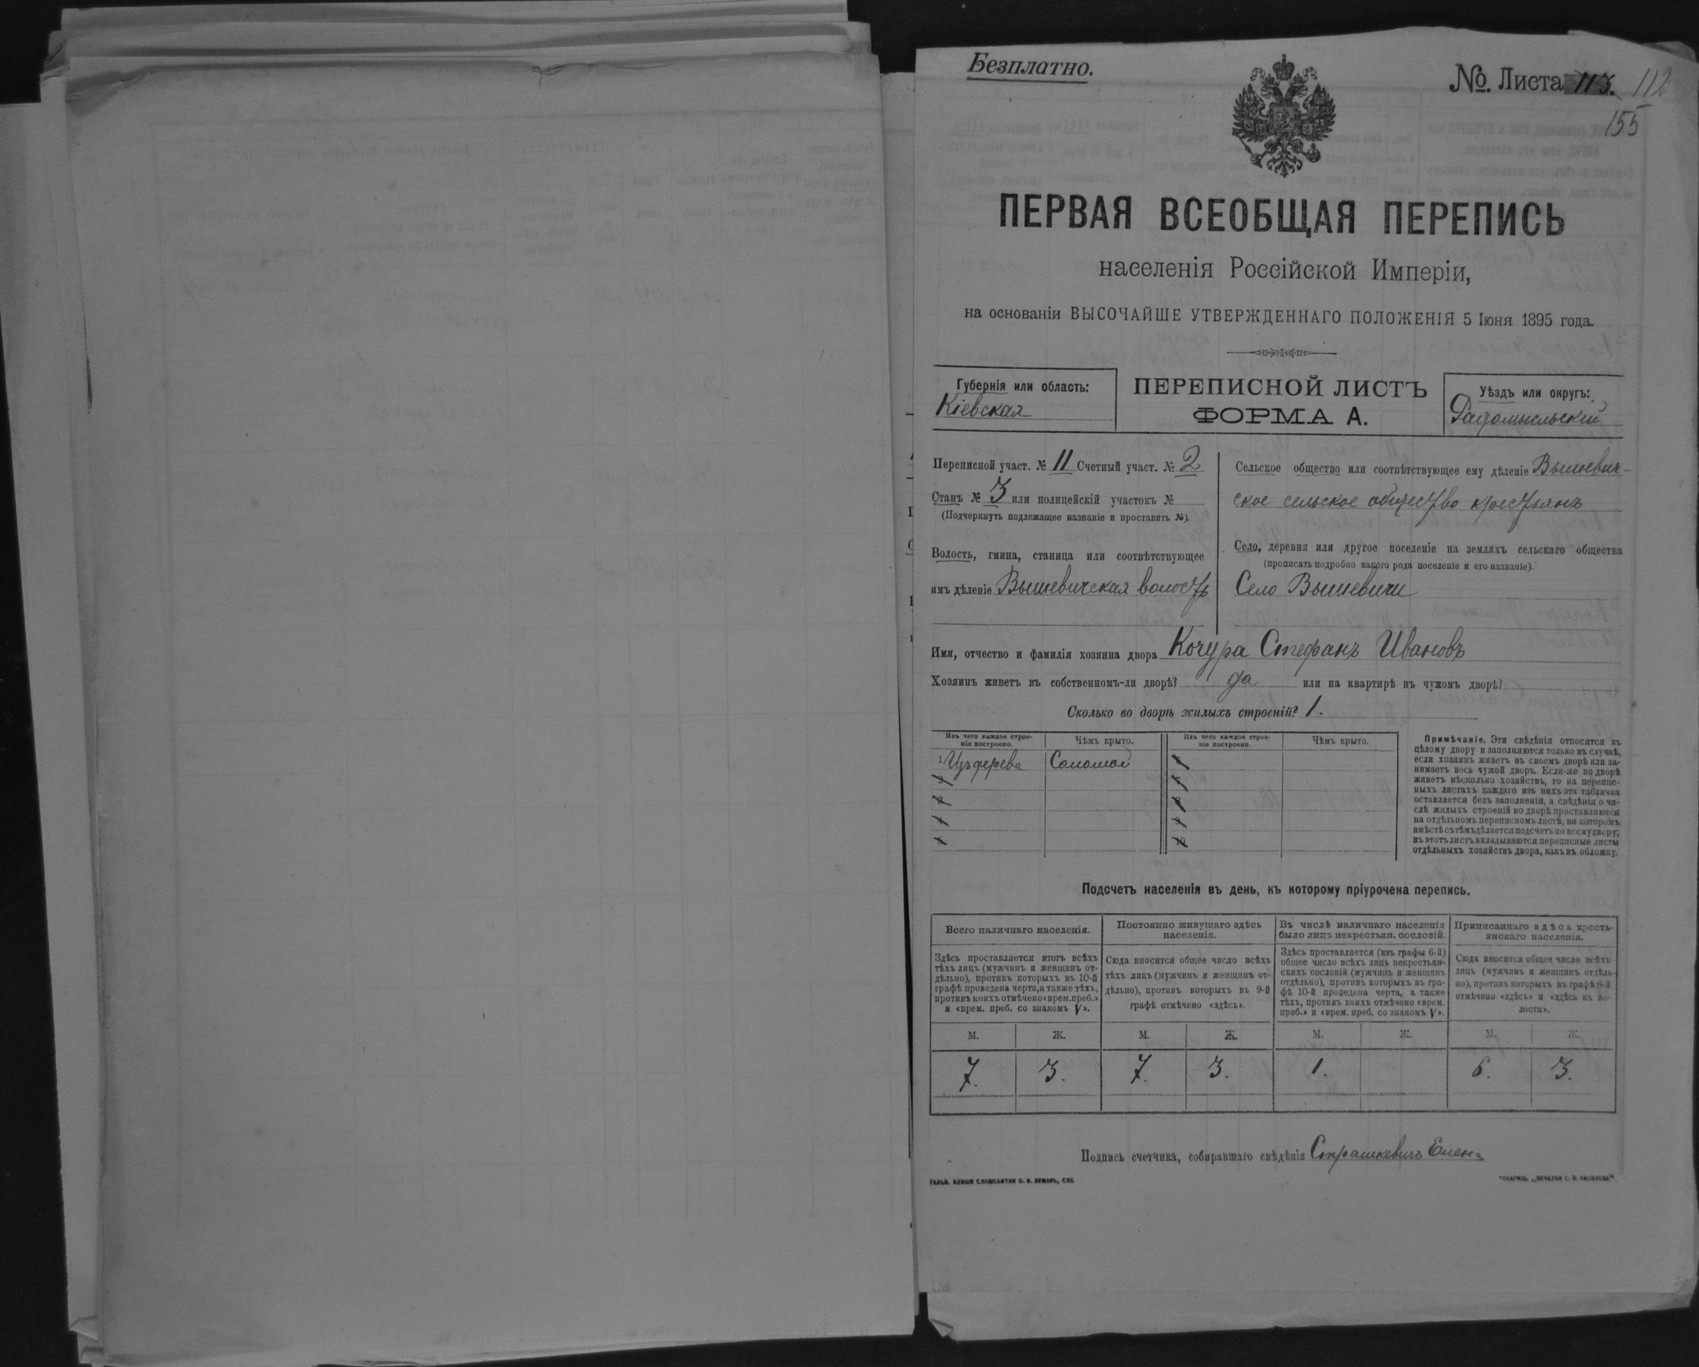 Безплатно.
№. Листа 113. 112
155
ПЕРВАЯ ВСЕОБЩАЯ ПЕРЕПИСЬ
населенія Россійской Имперіи,
на основаніи ВЫСОЧАЙШЕ УТВЕРЖДЕННАГО ПОЛОЖЕНІЯ 5 Іюня 1895 года.
Губернія или область:
Кіевская
ПЕРЕПИСНОЙ ЛИСТЪ
ФОРМА А.
Уѣздъ или округъ:
Радомысльскій
Переписной участ. № 11 Счетный участ. № 2
Станъ № 3 или полицейскій участокъ №
(Подчеркнуть подлежащее названіе и проставить №)
Волость, гмина, станица или соотвѣтствующее
имъ дѣленіе Вышевичская волость
Сельское общество или соотвѣтствующее ему дѣленіе Вышевич-
ское сельское общество крестьянъ
Село, деревня или другое поселеніе на земляхъ сельскаго общества
(прописать подробно какого рода поселеніе и его названіе).
Село Вышевичи
Имя, отчество и фамилія хозяина двора Кочура Стефанъ Ивановъ
Хозяинъ живетъ въ собственномъ-ли дворѣ? да или на квартирѣ въ чужомъ дворѣ?
Сколько во дворѣ жилыхъ строеній? 1.
Изъ чего каждое строе-
ніе построено.
Чѣмъ крыто.
1 Изъ дерева
Соломой
Изъ чего каждое строе-
ніе построено.
Чѣмъ крыто.
Примѣчаніе. Эти свѣдѣнія относятся къ
цѣлому двору и заполняются только въ случаѣ,
если хозяинъ живетъ въ своемъ дворѣ или за-
нимаетъ весь чужой дворъ. Если-же во дворѣ
живетъ нѣсколько хозяйствъ, то на перепис-
ныхъ листахъ каждаго изъ нихъ эта табличка
оставляется безъ заполненія, а свѣдѣнія о чи-
слѣ жилыхъ строеній во дворѣ проставляются
на отдѣльномъ переписномъ листѣ, на которомъ
вмѣстѣ съ тѣмъ дѣлается подсчетъ по всему двору;
въ этотъ листъ вкладываются переписные листы
отдѣльныхъ хозяйствъ двора, какъ въ обложку.
Подсчетъ населенія въ день, къ которому пріурочена перепись.
Всего наличнаго населенія.
Здѣсь проставляется итогъ всѣхъ
тѣхъ лицъ (мужчинъ и женщинъ от-
дѣльно), противъ которыхъ въ 10-й
графѣ проведена черта, а также тѣхъ,
противъ коихъ отмѣчено «врем. преб.»
и «врем. преб. со знакомъ V».
Постоянно живущаго здѣсь
населенія.
Сюда вносится общее число всѣхъ
тѣхъ лицъ (мужчинъ и женщинъ от-
дѣльно), противъ которыхъ въ 9-й
графѣ отмѣчено «здѣсь».
Въ числѣ наличнаго населенія
было лицъ некрестьян. сословій.
Здѣсь проставляется (изъ графы 6-й)
общее число всѣхъ лицъ некрестьян-
скихъ сословій (мужчинъ и женщинъ
отдѣльно), противъ которыхъ въ гра-
фѣ 10-й проведена черта, а также
тѣхъ, противъ коихъ отмѣчено «врем.
преб.» и «врем. преб. со знакомъ V».
Приписаннаго здѣсь кресть-
янскаго населенія.
Сюда вносится общее число всѣхъ
лицъ (мужчинъ и женщинъ отдѣль-
но), противъ которыхъ въ графѣ 8-й
отмѣчено «здѣсь» и «здѣсь въ во-
лости».
М. Ж. М. Ж. М. Ж. М. Ж.
7. 3. 7. 3. 1. 6. 3.
Подпись счетчика, собиравшаго свѣдѣнія Страшкевичъ